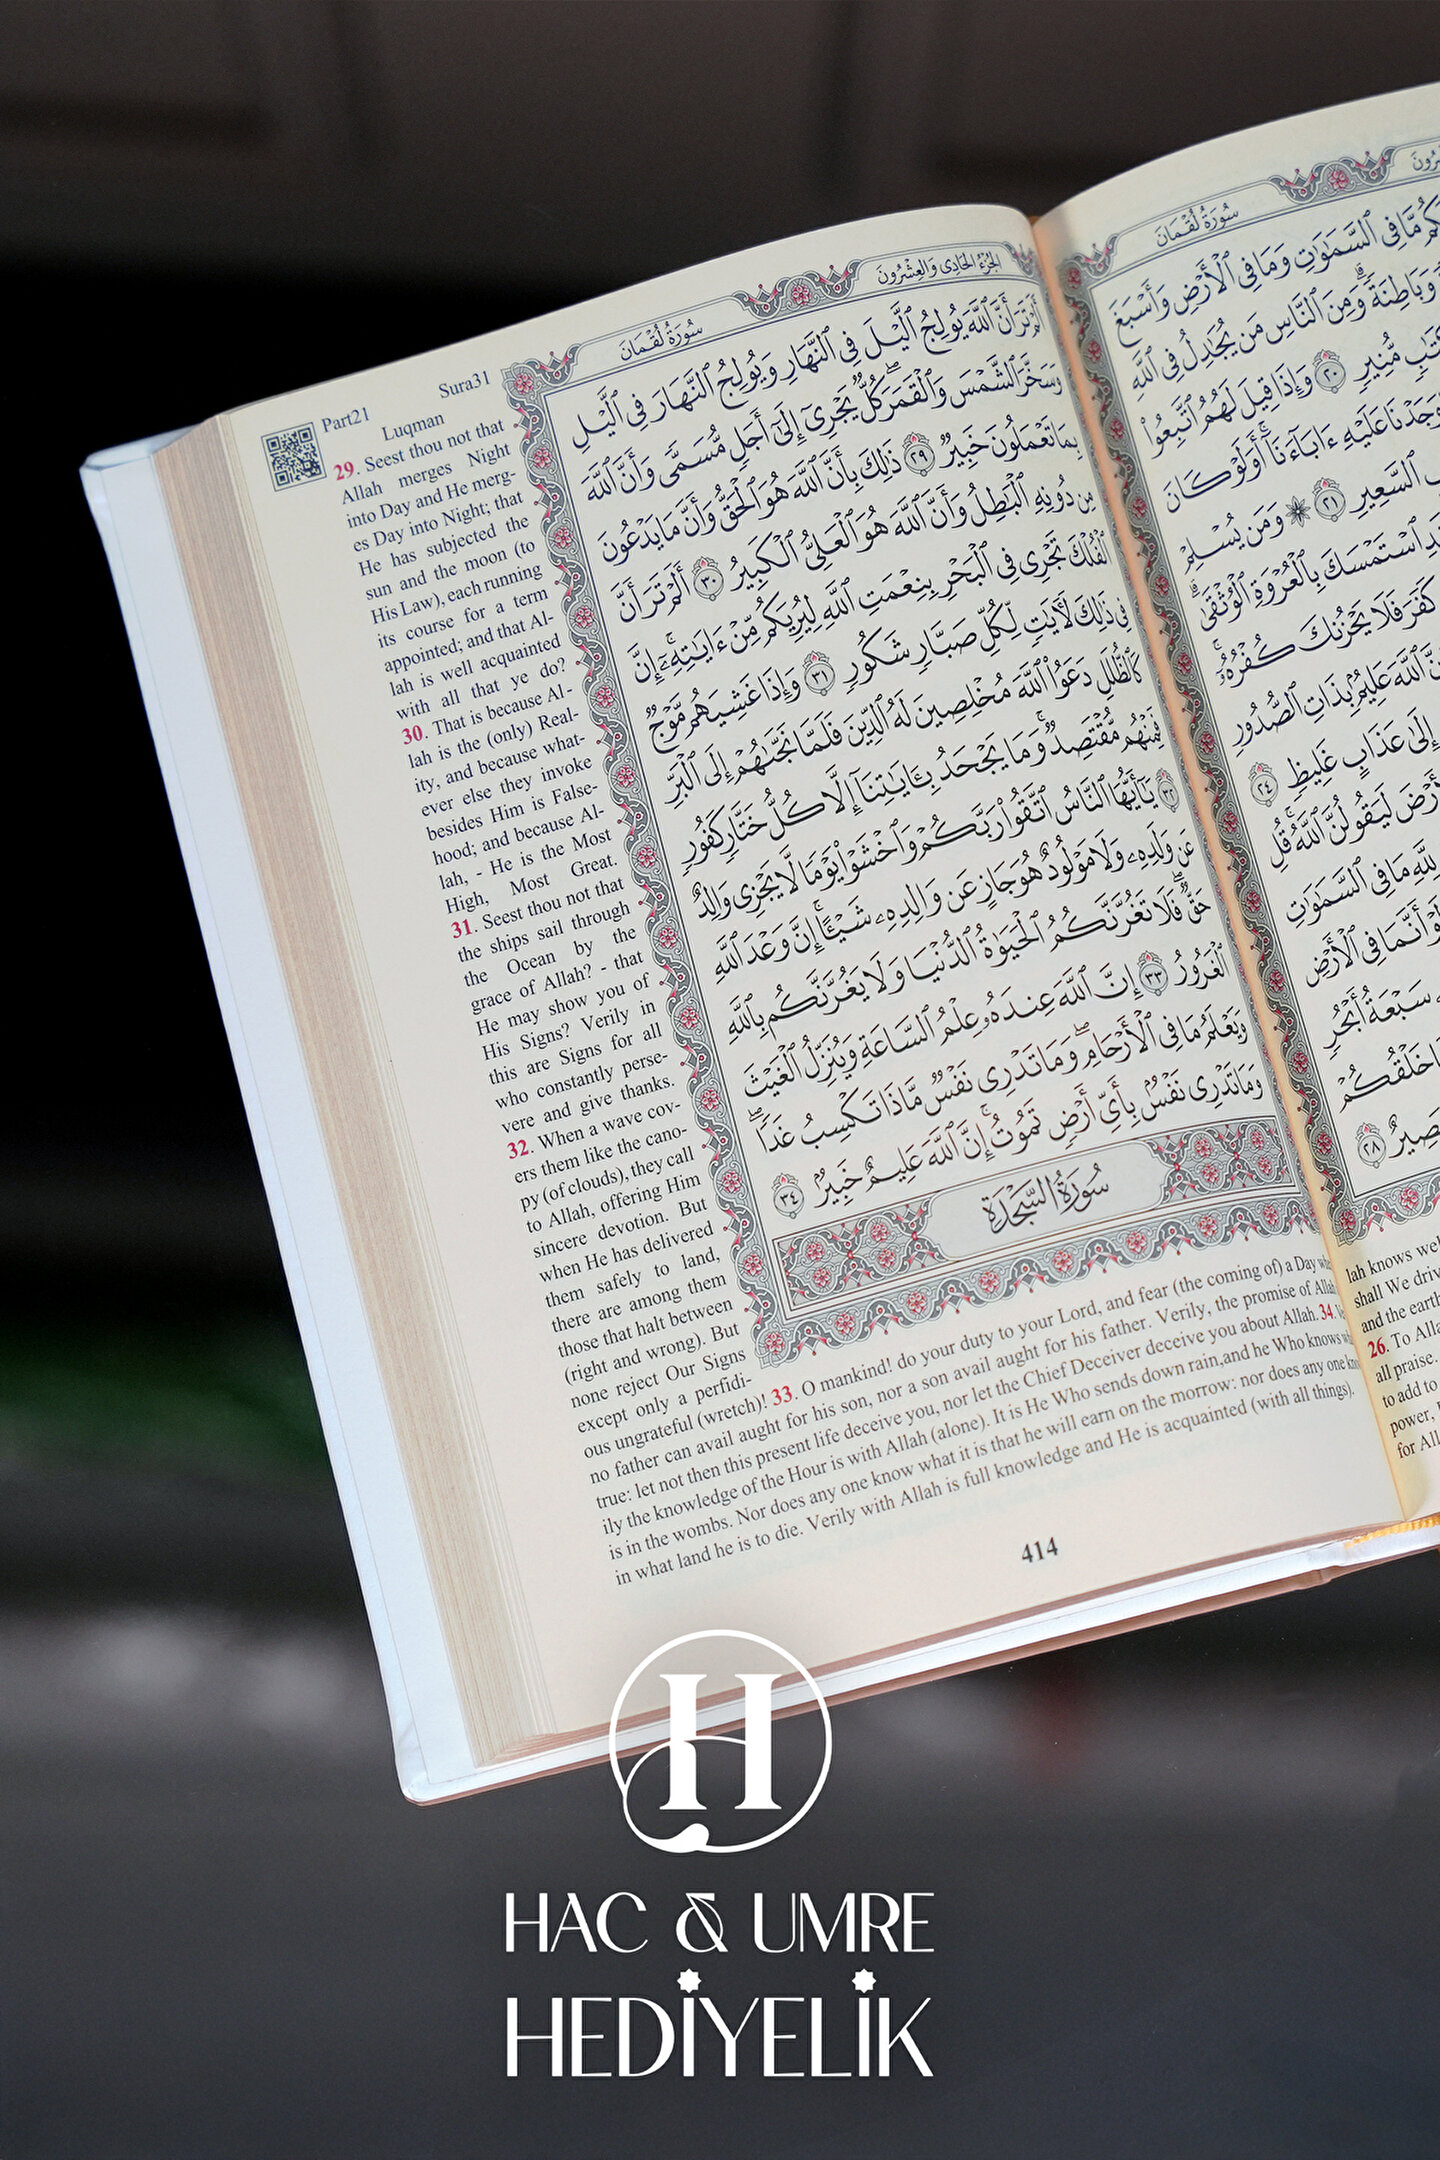 Part21 Sura31
Luqman
29. Seest thou not that
Allah merges Night
into Day and He merg-
es Day into Night; that
He has subjected the
sun and the moon (to
His Law), each running
its course for a term
appointed; and that Al-
lah is well acquainted
with all that ye do?
30. That is because Al-
lah is the (only) Real-
ity, and because what-
ever else they invoke
besides Him is False-
hood; and because Al-
lah, - He is the Most
High, Most Great.
31. Seest thou not that
the ships sail through
the Ocean by the
grace of Allah? - that
He may show you of
His Signs? Verily in
this are Signs for all
who constantly perse-
vere and give thanks.
32. When a wave cov-
ers them like the cano-
py (of clouds), they call
to Allah, offering Him
sincere devotion. But
when He has delivered
them safely to land,
there are among them
those that halt between
(right and wrong). But
none reject Our Signs
except only a perfidi-
ous ungrateful (wretch)! 33. O mankind! do your duty to your Lord, and fear (the coming of) a Day
no father can avail aught for his son, nor a son avail aught for his father. Verily, the promise of
true: let not then this present life deceive you, nor let the Chief Deceiver deceive you about Allah. 34.
ily the knowledge of the Hour is with Allah (alone). It is He Who sends down rain,and he Who knows
is in the wombs. Nor does any one know what it is that he will earn on the morrow: nor does any one
in what land he is to die. Verily with Allah is full knowledge and He is acquainted (with all things).
414
سُورَةُ لُقْمَان الجُزْءُ الحَادِى وَالعِشْرُونَ
أَلَمْ تَرَ أَنَّ ٱللَّهَ يُولِجُ ٱلَّيْلَ فِى ٱلنَّهَارِ وَيُولِجُ ٱلنَّهَارَ فِى ٱلَّيْلِ
وَسَخَّرَ ٱلشَّمْسَ وَٱلْقَمَرَ كُلٌّ يَجْرِىٓ إِلَىٰٓ أَجَلٍ مُّسَمًّى وَأَنَّ ٱللَّهَ
بِمَا تَعْمَلُونَ خَبِيرٌ ٢٩ ذَٰلِكَ بِأَنَّ ٱللَّهَ هُوَ ٱلْحَقُّ وَأَنَّ مَا يَدْعُونَ
مِن دُونِهِ ٱلْبَٰطِلُ وَأَنَّ ٱللَّهَ هُوَ ٱلْعَلِىُّ ٱلْكَبِيرُ ٣٠ أَلَمْ تَرَ أَنَّ
ٱلْفُلْكَ تَجْرِى فِى ٱلْبَحْرِ بِنِعْمَتِ ٱللَّهِ لِيُرِيَكُم مِّنْ ءَايَٰتِهِۦٓ إِنَّ
فِى ذَٰلِكَ لَـَٔايَٰتٍ لِّكُلِّ صَبَّارٍ شَكُورٍ ٣١ وَإِذَا غَشِيَهُم مَّوْجٌ
كَٱلظُّلَلِ دَعَوُا۟ ٱللَّهَ مُخْلِصِينَ لَهُ ٱلدِّينَ فَلَمَّا نَجَّىٰهُمْ إِلَى ٱلْبَرِّ
فَمِنْهُم مُّقْتَصِدٌ وَمَا يَجْحَدُ بِـَٔايَٰتِنَآ إِلَّا كُلُّ خَتَّارٍ كَفُورٍ
٣٢ يَٰٓأَيُّهَا ٱلنَّاسُ ٱتَّقُوا۟ رَبَّكُمْ وَٱخْشَوْا۟ يَوْمًا لَّا يَجْزِى وَالِدٌ
عَن وَلَدِهِۦ وَلَا مَوْلُودٌ هُوَ جَازٍ عَن وَالِدِهِۦ شَيْـًٔا إِنَّ وَعْدَ ٱللَّهِ
حَقٌّ فَلَا تَغُرَّنَّكُمُ ٱلْحَيَوٰةُ ٱلدُّنْيَا وَلَا يَغُرَّنَّكُم بِٱللَّهِ
ٱلْغَرُورُ ٣٣ إِنَّ ٱللَّهَ عِندَهُۥ عِلْمُ ٱلسَّاعَةِ وَيُنَزِّلُ ٱلْغَيْثَ
وَيَعْلَمُ مَا فِى ٱلْأَرْحَامِ وَمَا تَدْرِى نَفْسٌ مَّاذَا تَكْسِبُ غَدًا
وَمَا تَدْرِى نَفْسٌۢ بِأَىِّ أَرْضٍ تَمُوتُ إِنَّ ٱللَّهَ عَلِيمٌ خَبِيرٌۢ ٣٤
سُورَةُ السَّجْدَةِ
سُورَةُ لُقْمَان
مَّا فِى ٱلسَّمَٰوَٰتِ وَمَا فِى ٱلْأَرْضِ وَأَسْبَغَ
وَبَاطِنَةً وَمِنَ ٱلنَّاسِ مَن يُجَٰدِلُ فِى ٱللَّهِ
مُّنِيرٍ ٢٠ وَإِذَا قِيلَ لَهُمُ ٱتَّبِعُوا۟
وَجَدْنَا عَلَيْهِ ءَابَآءَنَآ أَوَلَوْ كَانَ
ٱلسَّعِيرِ ٢١ وَمَن يُسْلِمْ
ٱسْتَمْسَكَ بِٱلْعُرْوَةِ ٱلْوُثْقَىٰ
كَفَرَ فَلَا يَحْزُنكَ كُفْرُهُۥٓ
ٱللَّهَ عَلِيمٌۢ بِذَاتِ ٱلصُّدُورِ
إِلَىٰ عَذَابٍ غَلِيظٍ ٢٤
لَيَقُولُنَّ ٱللَّهُ قُلِ
لِلَّهِ مَا فِى ٱلسَّمَٰوَٰتِ
أَنَّمَا فِى ٱلْأَرْضِ
سَبْعَةُ أَبْحُرٍ
خَلْقُكُمْ
٢٨
lah knows
shall We
and the
26. To
all praise.
to add to
power,
for
H
HAC & UMRE
HEDİYELİK